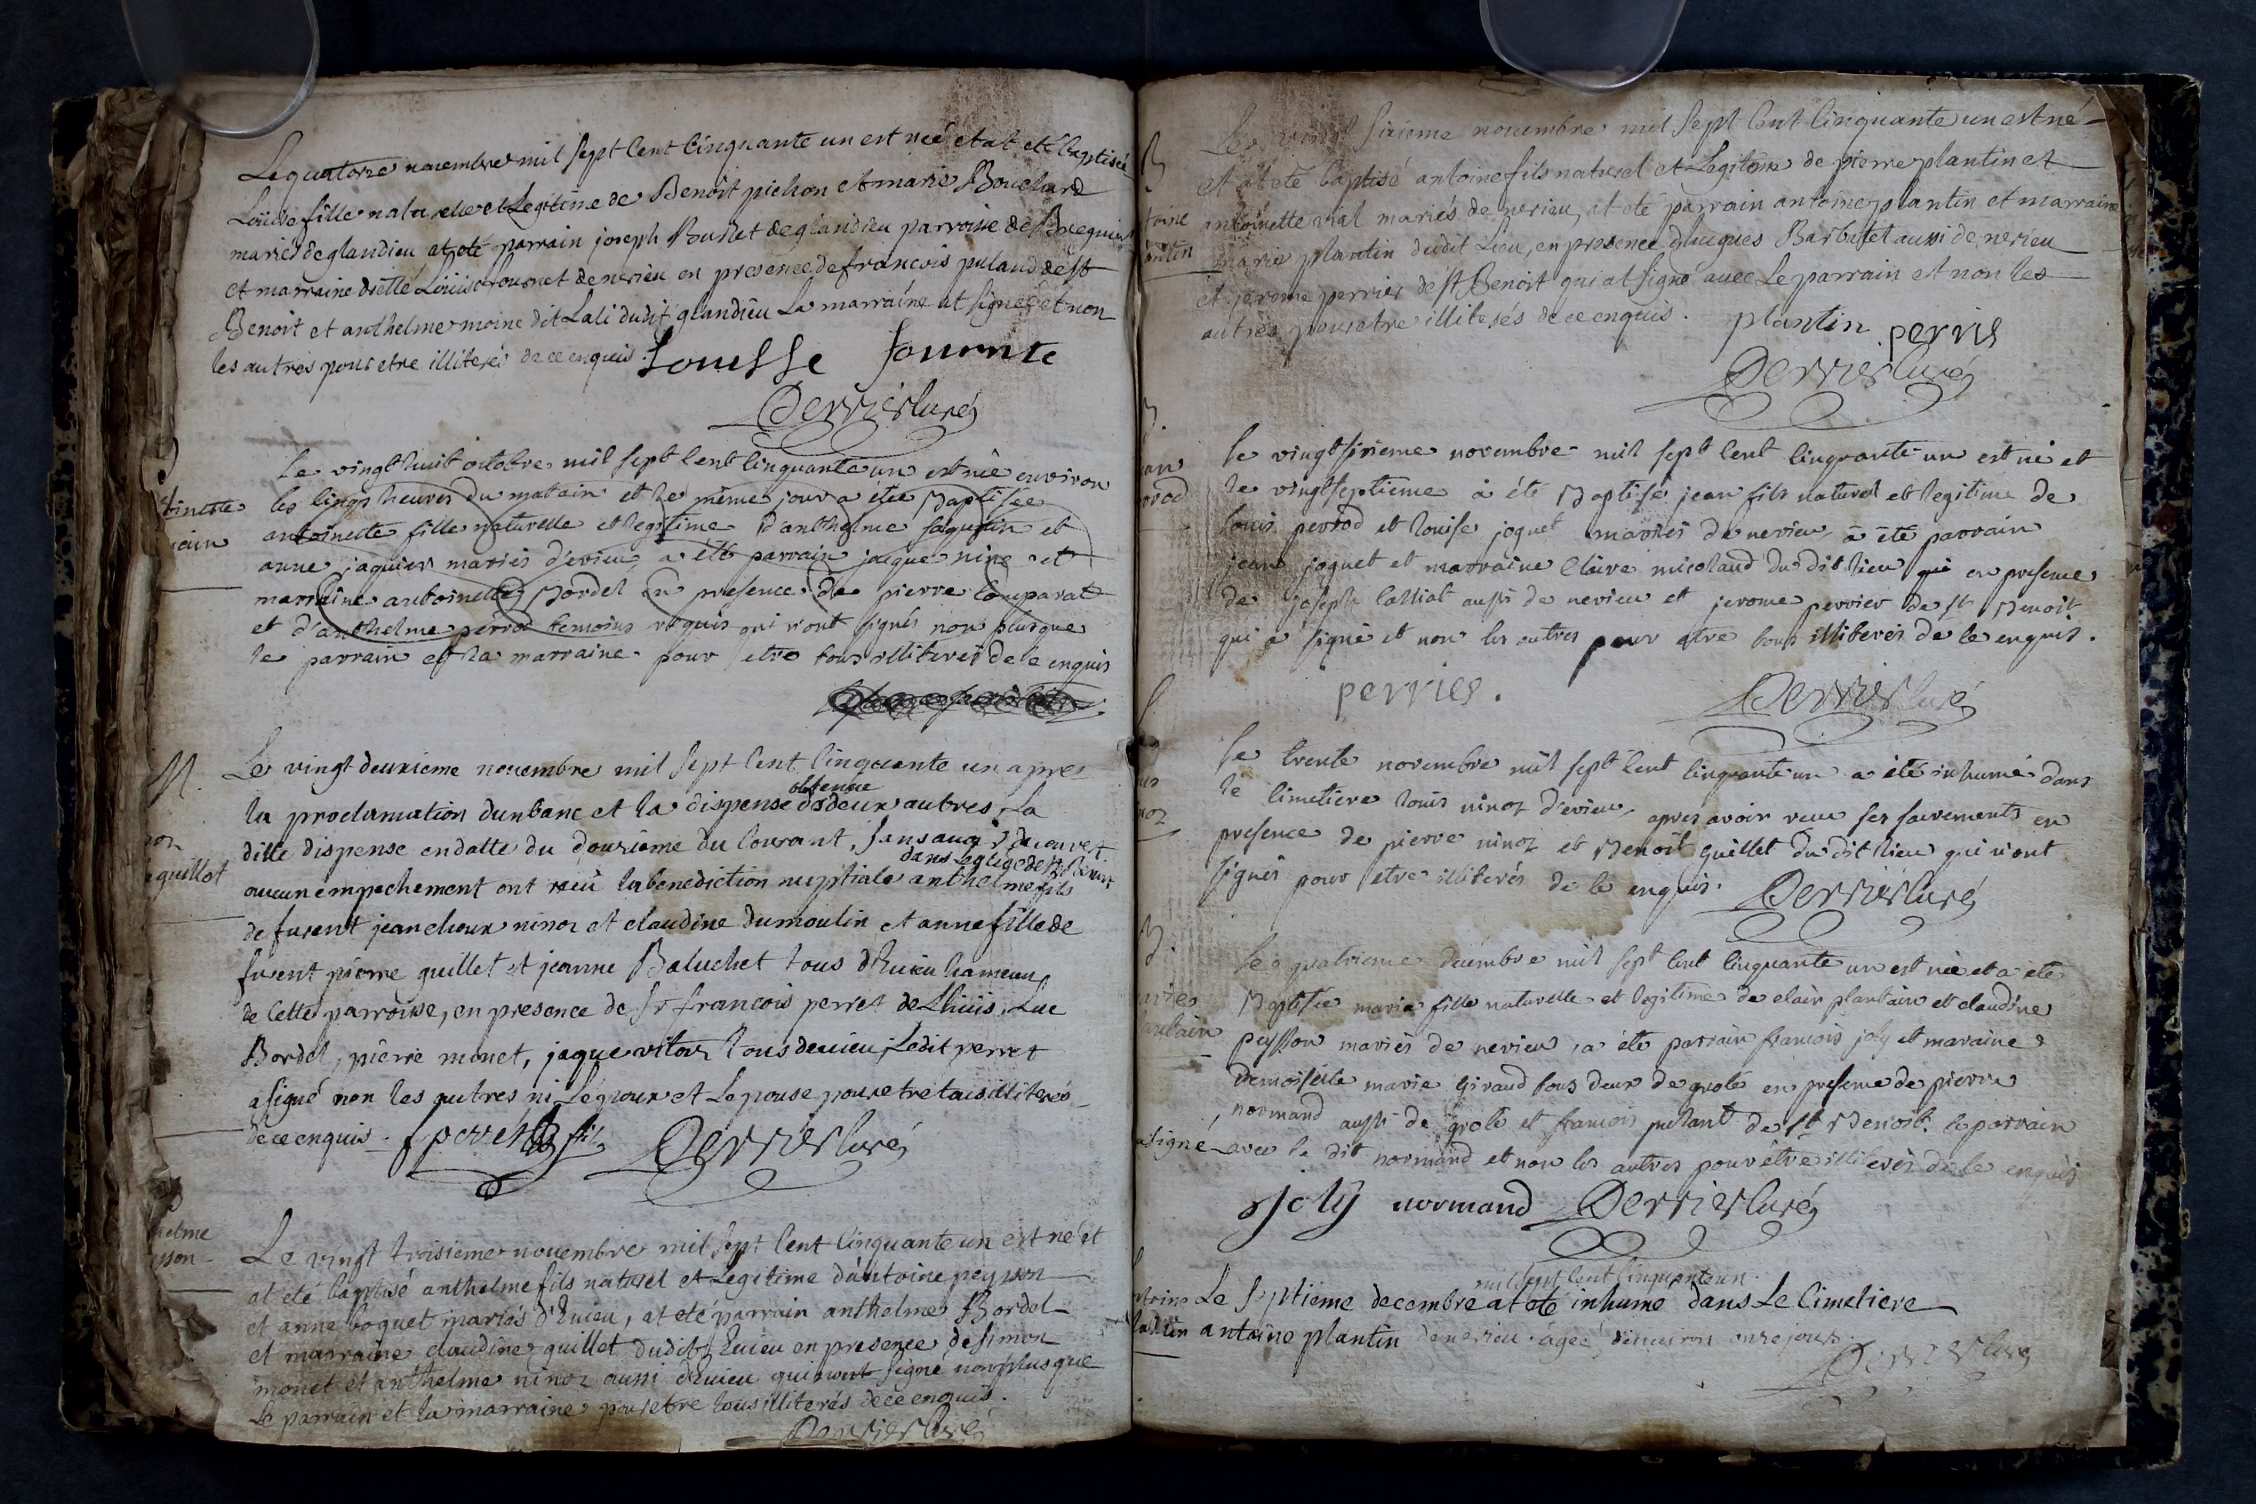 Le quatorze novembre mil sept cent cinquante un est née et at eté baptisée
Louise fille naturelle et Legitime de Benoit pichon et marie Bouchard
mariés de glandieu at eté parrain joseph Buslet de glandieu parroise de Bregnier
et marraine dlle Louise fournet de nerieu en presence de francois pulaud de st
Benoit et anthelme moine dit Lali dudit glandieu La marraine at signé et non
les autres pour etre illiterés de ce enquis. Louisse fournte
Perrier curé
Le vingt huit octobre mil sept cent cinquante un est née environ
les cinq heures du matain et le même jour a étée Baptisée
antoinette fille naturelle et legitime d'anthelme jaquin et
anne jaquier mariés d'evieu a été parrain jacque nine et
marraine antoinette Bordel en presence de pierre Comparat
et d'anthelme perrod temoins requis qui n'ont signés non plusque
le parrain et la marraine pour etre tous illiterés de ce enquis
M.
guillot
Le vingt deuxieme novembre mil sept cent cinquante un apres
la proclamation dun banc et la dispense obtenue de deux autres La
ditte dispense en datte du douzième du Courant, sans aucu decouvert
dans Leglise de st Benoit
aucun empechement ont reçu la benediction nuptiale anthelme fils
de furent jean choux ninoz et claudine dumoulin et anne fille de
furent pierre guillet et jeanne Baluchet tous d'Euieu hameau
de Cette parroise, en presence de sr francois perret de Lhuis, Luc
Bordel, pierre monet, jaque vitoz tous deuieu, Ledit perret
a signé non les autres ni Lépoux et Lepouse pour etre tous illiterés
de ce enquis. perret fils Perrier curé
helme
yson
Le vingt troisieme novembre mil sept cent cinquante un est né et
at eté baptisé anthelme fils naturel et Legitime d'antoine peysson
et anne boquet mariés d'Euieu, at eté parrain anthelme Bordel
et marraine claudine guillet dudit Euieu en presence de simon
monet et anthelme ninoz aussi d'Euieu qui n'ont signé non plus que
Le parrain et la marraine pour etre tous illiterés de ce enquis.
Perrier curé
B
toine
antin
Le vingt sixieme novembre mil sept cent cinquante un est né
et at eté baptisé antoine fils naturel et Legitime de pierre plantin et
antoinette vial mariés de nerieu, at eté parrain antoine plantin et marraine
marie plantin dudit Lieu, en presence d'hugues Barbet aussi de nerieu
et jerome perrier de st Benoit qui at signé avec Le parrain et non les
autres pour etre illiterés de ce enquis. plantin perrie
Perrier curé
B.
an
rod
le vingtsixieme novembre mil sept cent cinquante un est né et
le vingtseptieme a été Baptisé jean fils naturel et legitime de
louis perrod et louise joquet mariés de nerieu a été parrain
jean joquet et marraine Claire micohaud du dit lieu en presence
de joseph Calliat aussi de nerieu et jerome perrier de st Benoit
qui a signé et non les autres pour etre tous illiterés de ce enquis.
perrier. Perrier curé
noz
le trente novembre mil sept cent cinquante un a été inhumé dans
le cimetiere louis ninoz d'evieu apres avoir reçu ses sacrements en
presence de pierre ninoz et Benoit guillet du dit lieu qui n'ont
signés pour etre illiterés de ce enquis. Perrier curé
B.
arie
antain
Le quatrieme decembre mil sept cent cinquante un est née et a eté
Baptisée marie fille naturelle et legitime de clair plantain et claudine
peysson mariés de nerieu, a été parrain francois joly et maraine
demoiselle marie Giraud tous deux de grolé en presence de pierre
normand aussi de grolé et francois pulant de st Benoit. le parrain
a signé avec le dit normand et non les autres pour être illiterés de ce enquis
joly normand Perrier curé
mil sept cent cinquante un
ntoine Le septieme decembre at eté inhumé dans Le Cimetiere
lantin antoine plantin de nerieu agée d'environ onze jours.
Perrier curé